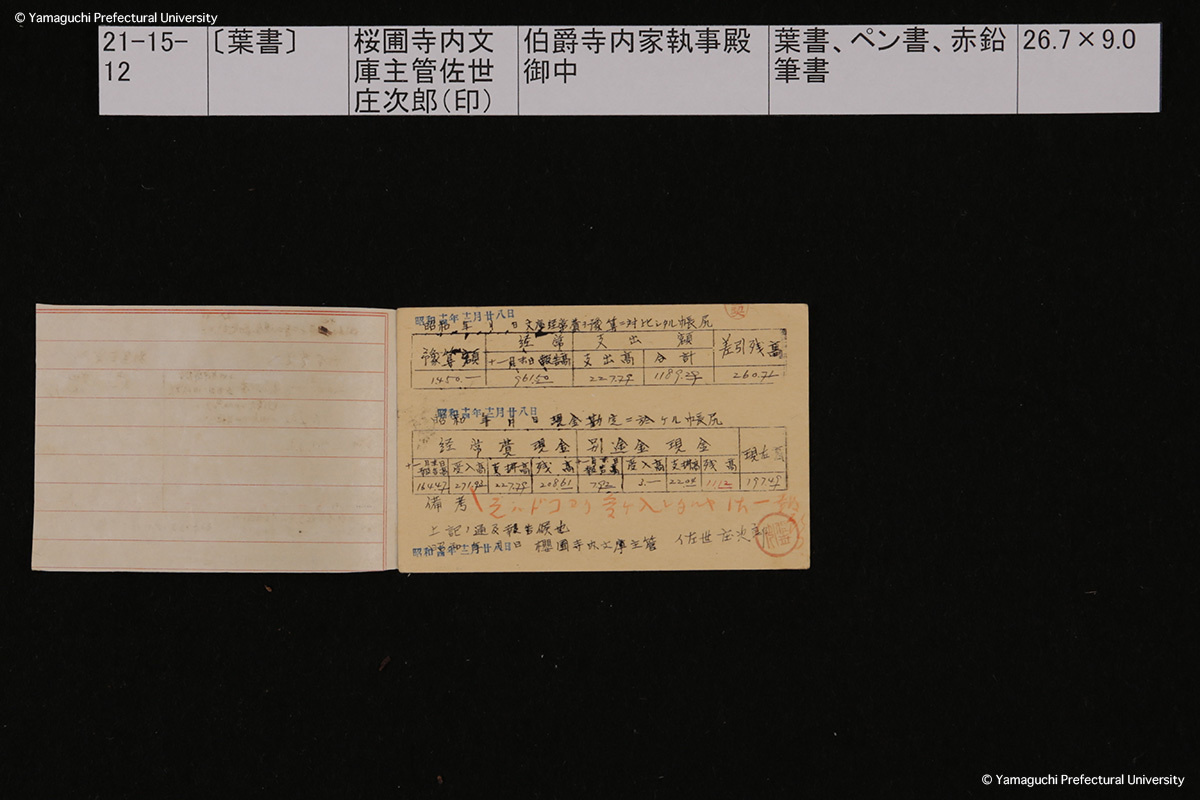 © Yamaguchi Prefectural University
21-15-12
〔葉書〕
桜圃寺内文庫主管佐世庄次郎（印）
伯爵寺内家執事殿御中
葉書、ペン書、赤鉛筆書
26.7×9.0
昭和 年 月 日文庫経常費ノ豫算ニ対比シタル帳尻
豫算額 経常支出額 差引残高
報告高 支出高 合計
1450.— 961.50 227.79 1189.29 260.71
昭和 年 月 日現金勘定ニ於ケル帳尻
経常費現金 別途金現金 現在高
受入高 支拂高 残高 受入高 支拂高 残高
164.47 271.93 227.79 208.61 7.92 3.— 11.12 197.49
備考
上記ノ通及報告候也
櫻圃寺内文庫主管 佐世庄次郎
© Yamaguchi Prefectural University